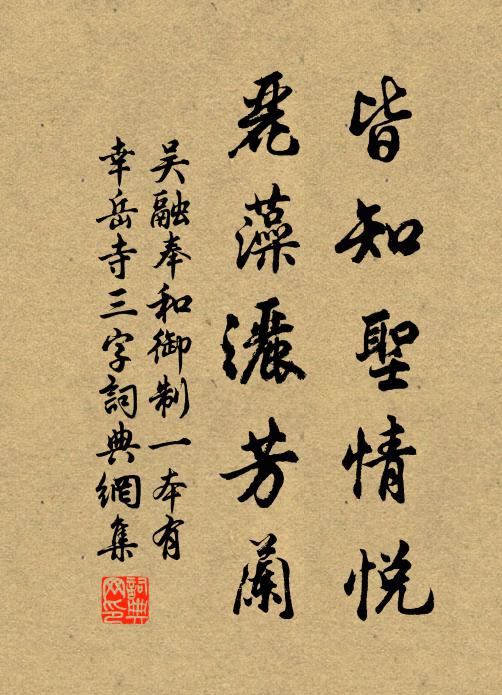 皆知聖情悅
麗藻灑芳蘭
吴融奉和御制一本有
幸岳寺三字詞典網集
詞典网印